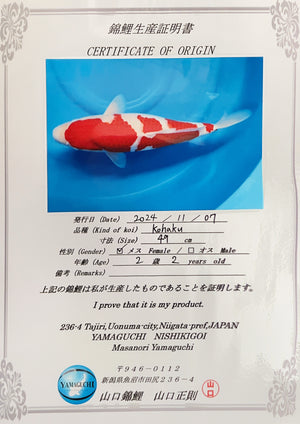 錦鯉生産証明書
CERTIFICATE OF ORIGIN
発行日 (Date) 2024 / 11 / 07
品種 (Kind of koi) Kohaku
寸法 (Size) 49 cm
性別 (Gender) ☑ メス Female / ☐ オス Male
年齢 (Age) 2 歳 2 years old
備考 (Remarks)
上記の錦鯉は私が生産したものであることを証明します。
I prove that it is my product.
236-4 Tajiri,Uonuma-city,Niigata-pref,JAPAN
YAMAGUCHI NISHIKIGOI
Masanori Yamaguchi
〒946-0112
新潟県魚沼市田尻236-4
山口錦鯉 山口正則
YAMAGUCHI
山口